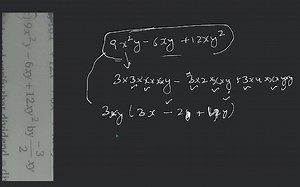 9x²y - 6xy + 12xy²
3×3×x×x×y - 3×2×x×y + 3×4×x×y×y
3xy (3x - 2 + 4y)
9x²y - 6xy + 12xy² by -3/2 xy